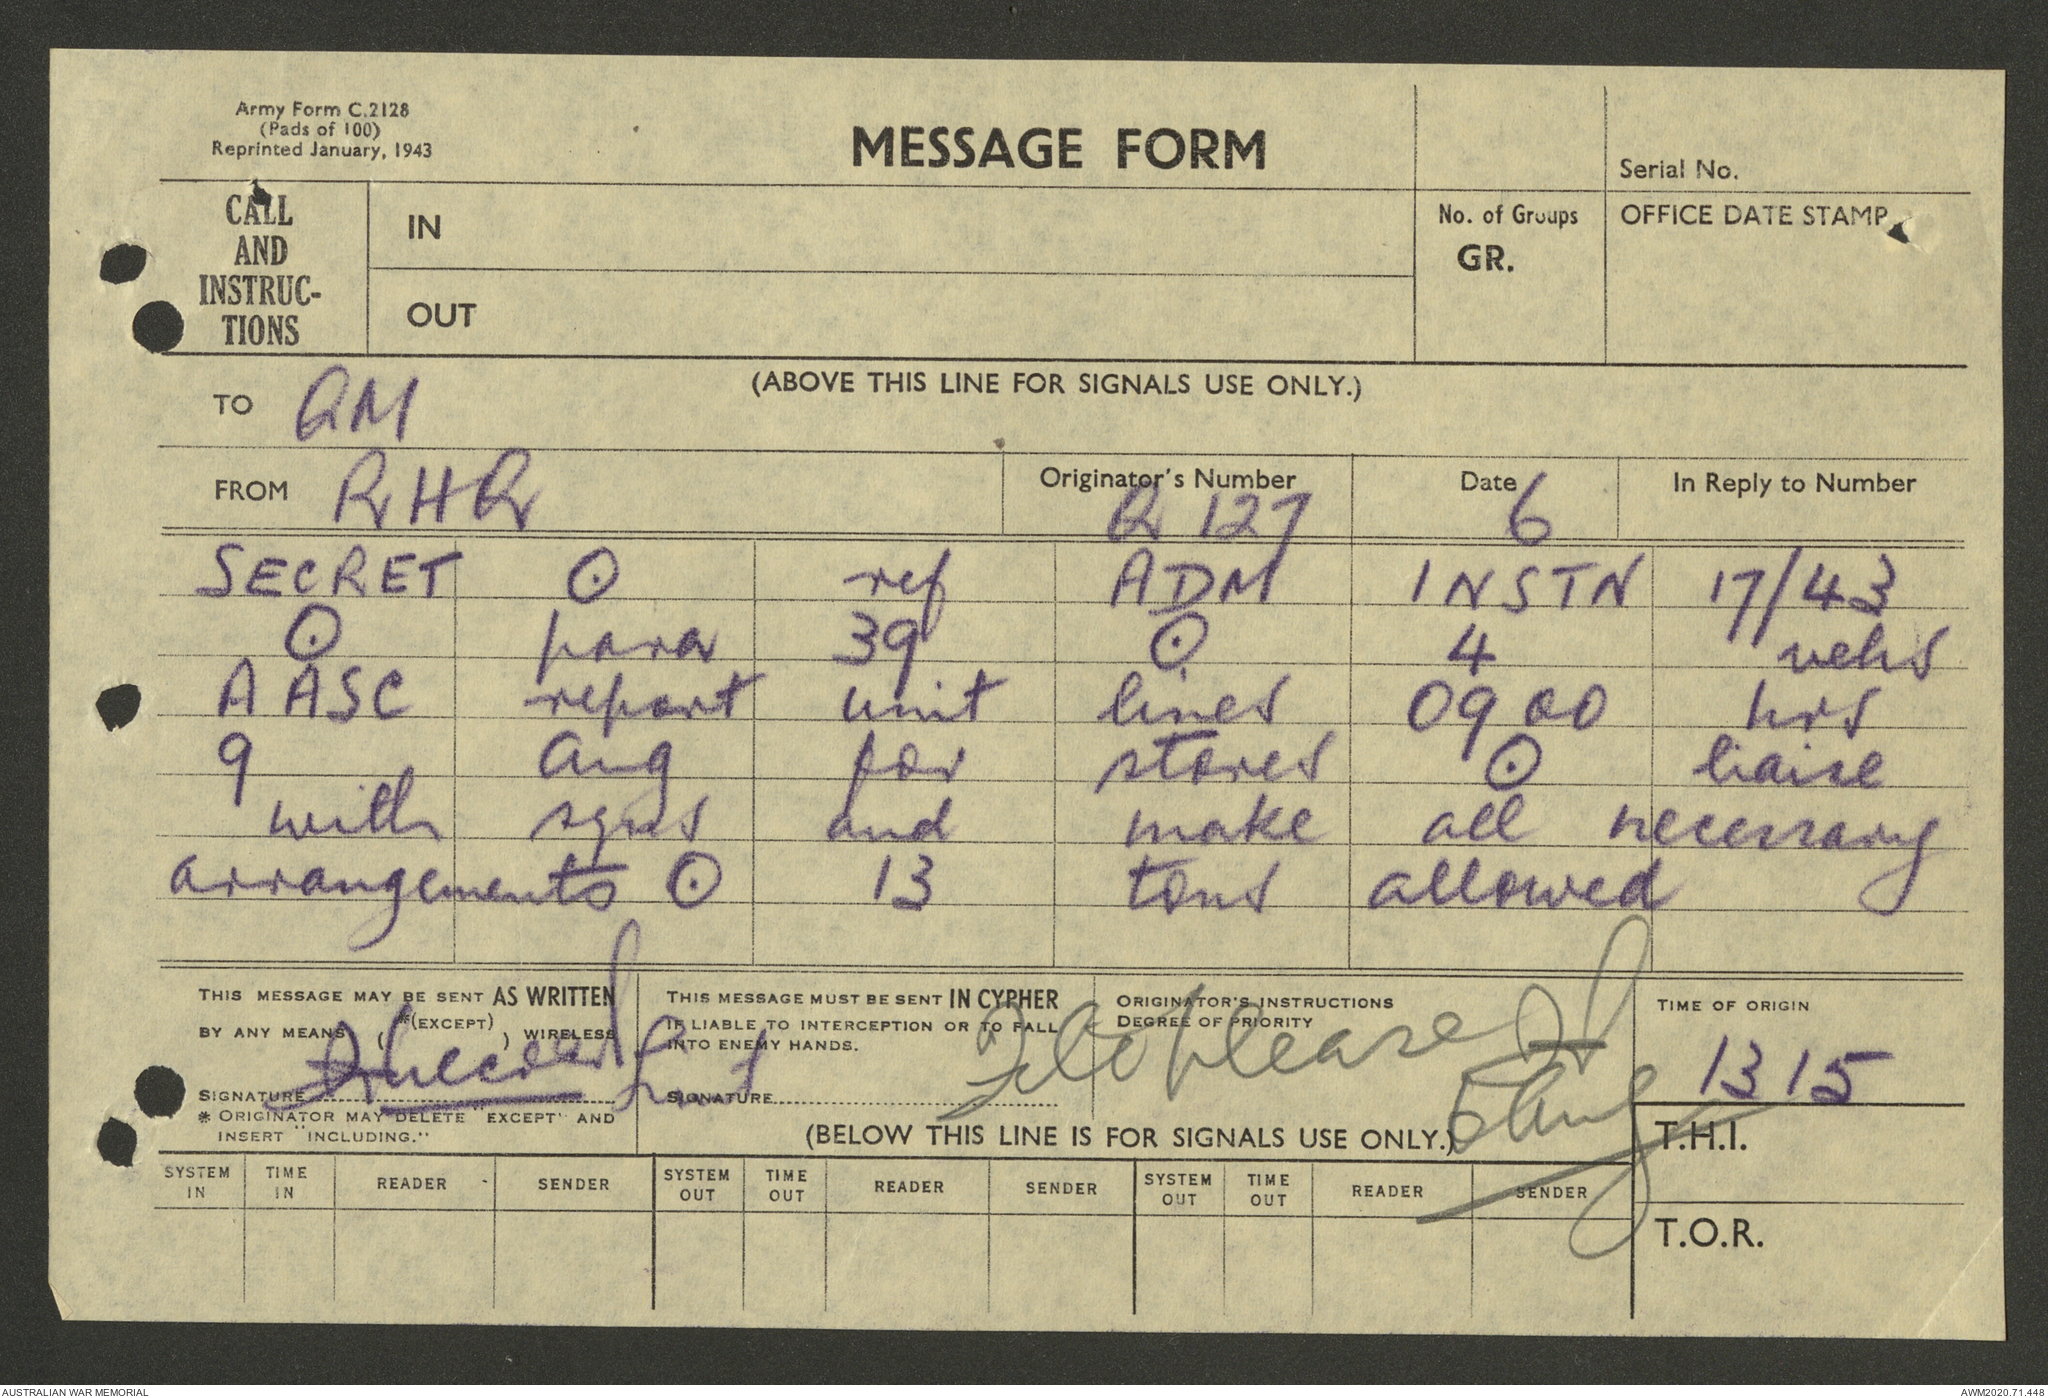 Army Form C.2128
(Pads of 100)
Reprinted January, 1943
MESSAGE FORM
Serial No.
CALL AND INSTRUC-TIONS
IN
OUT
No. of Groups
GR.
OFFICE DATE STAMP
(ABOVE THIS LINE FOR SIGNALS USE ONLY.)
TO QM
FROM RHQ
Originator's Number Q 127
Date 6
In Reply to Number
SECRET ⊙ ref ADM INSTN 17/43
⊙ para 39 ⊙ 4 vehs
AASC report unit lines 0900 hrs
9 Aug for stores ⊙ liaise
with sqns and make all necessary
arrangements ⊙ 13 tons allowed
THIS MESSAGE MAY BE SENT AS WRITTEN
BY ANY MEANS (*(EXCEPT) ) WIRELESS
SIGNATURE
* ORIGINATOR MAY DELETE "EXCEPT" AND
INSERT "INCLUDING."
THIS MESSAGE MUST BE SENT IN CYPHER
IF LIABLE TO INTERCEPTION OR TO FALL
INTO ENEMY HANDS.
SIGNATURE
ORIGINATOR'S INSTRUCTIONS
DEGREE OF PRIORITY
please
TIME OF ORIGIN
1315
(BELOW THIS LINE IS FOR SIGNALS USE ONLY.)
T.H.I.
SYSTEM IN TIME IN READER SENDER SYSTEM OUT TIME OUT READER SENDER SYSTEM OUT TIME OUT READER SENDER
T.O.R.
AUSTRALIAN WAR MEMORIAL
AWM2020.71.448